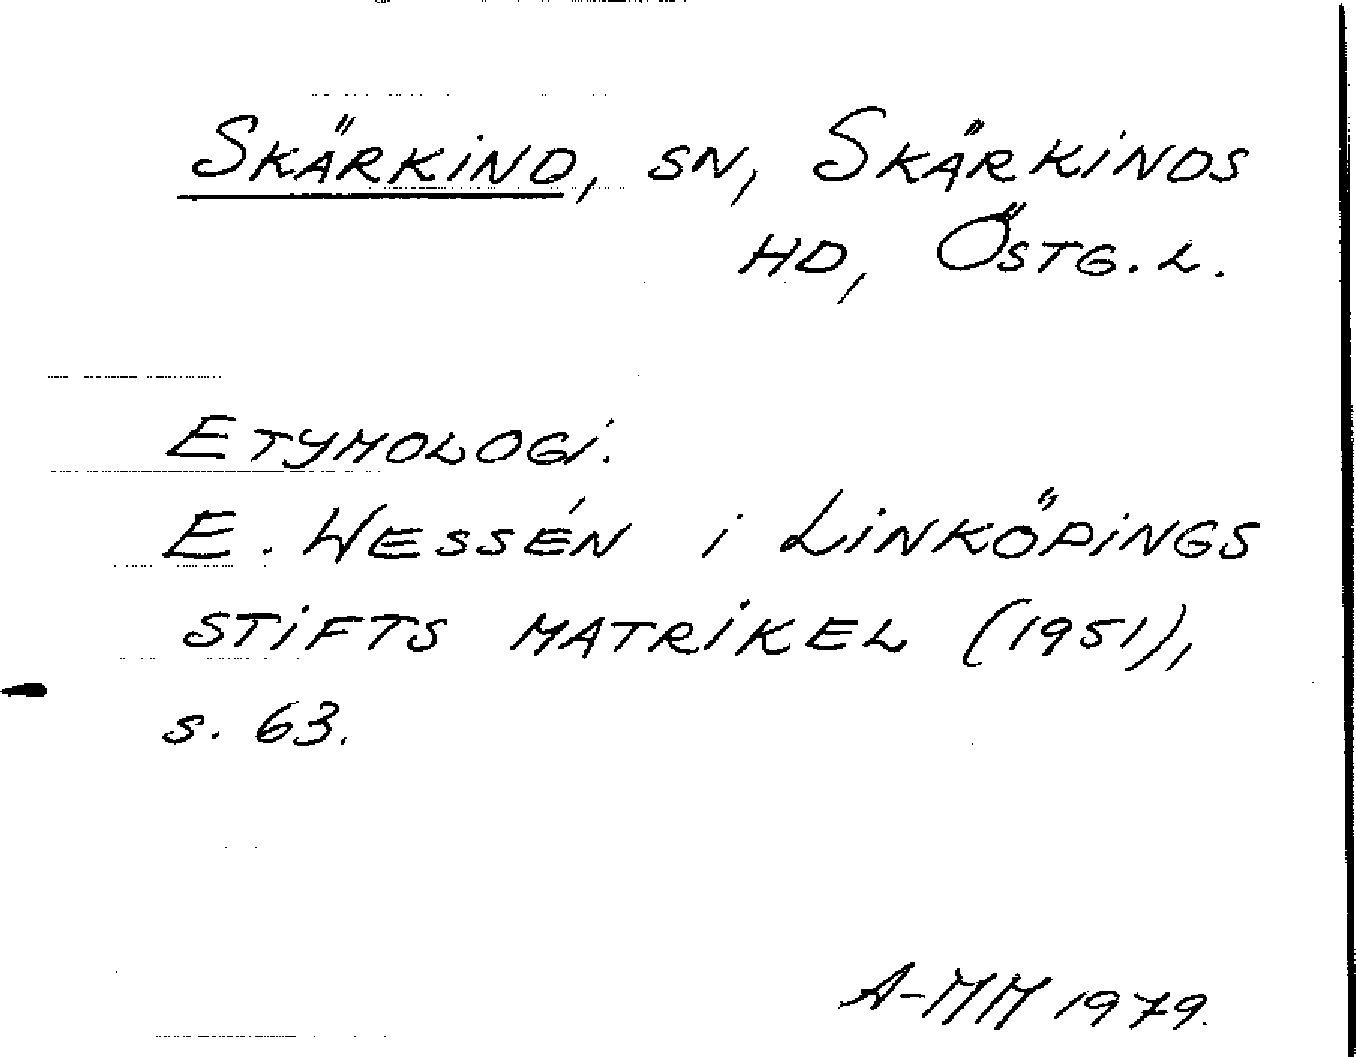 Skärkind, sn, Skärkinds
hd, Östg. l.
Etymologi.
E. Wessén i Linköpings
stifts matrikel (1951),
s. 63.
A-MM 1979.